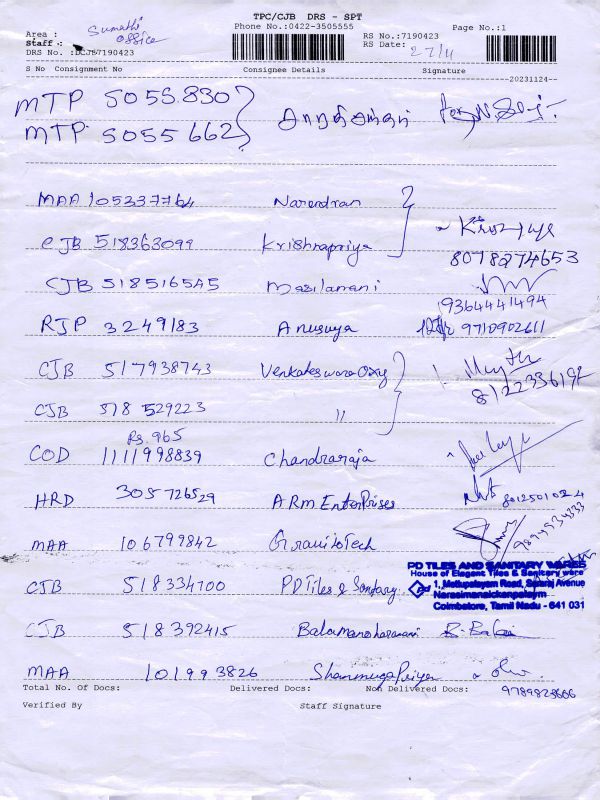 TPC/CJB DRS - SPT
Phone No.:0422-3505555 Page No.:1
Area : Sumathi office
Staff : RS No.:7190423
DRS No. :DCJB7190423 RS Date: 27/11
S No Consignment No Consignee Details Signature
20231124
MTP 5055830
MTP 5055662
MAA 105337764 Narendran
CJB 518363099 Krishnapriya
8078274653
CJB 518516545 Masilamani
9364441494
RJP 3249183 Anusuya 9710902611
CJB 517938743 Venkateswara
8122336192
CJB 518 529223 "
Rs. 965
COD 1111998839 Chandraraja
HRD 305726529 ARM EnterPrises 8012501024
MAA 106799842
PD TILES AND SANITARY WARES
House of Elegant Tiles & Sanitary ware
CJB 518334700 PD Tiles & Sanitary pd 1, Mettupalayam Road,
Narasimanaickenpalaym
Coimbatore, Tamil Nadu - 641 031
CJB 518392415 Balamanoharamani
MAA 101993826 ShanmugaPriya
Total No. Of Docs: Delivered Docs: Non Delivered Docs: 9789823606
Verified By Staff Signature